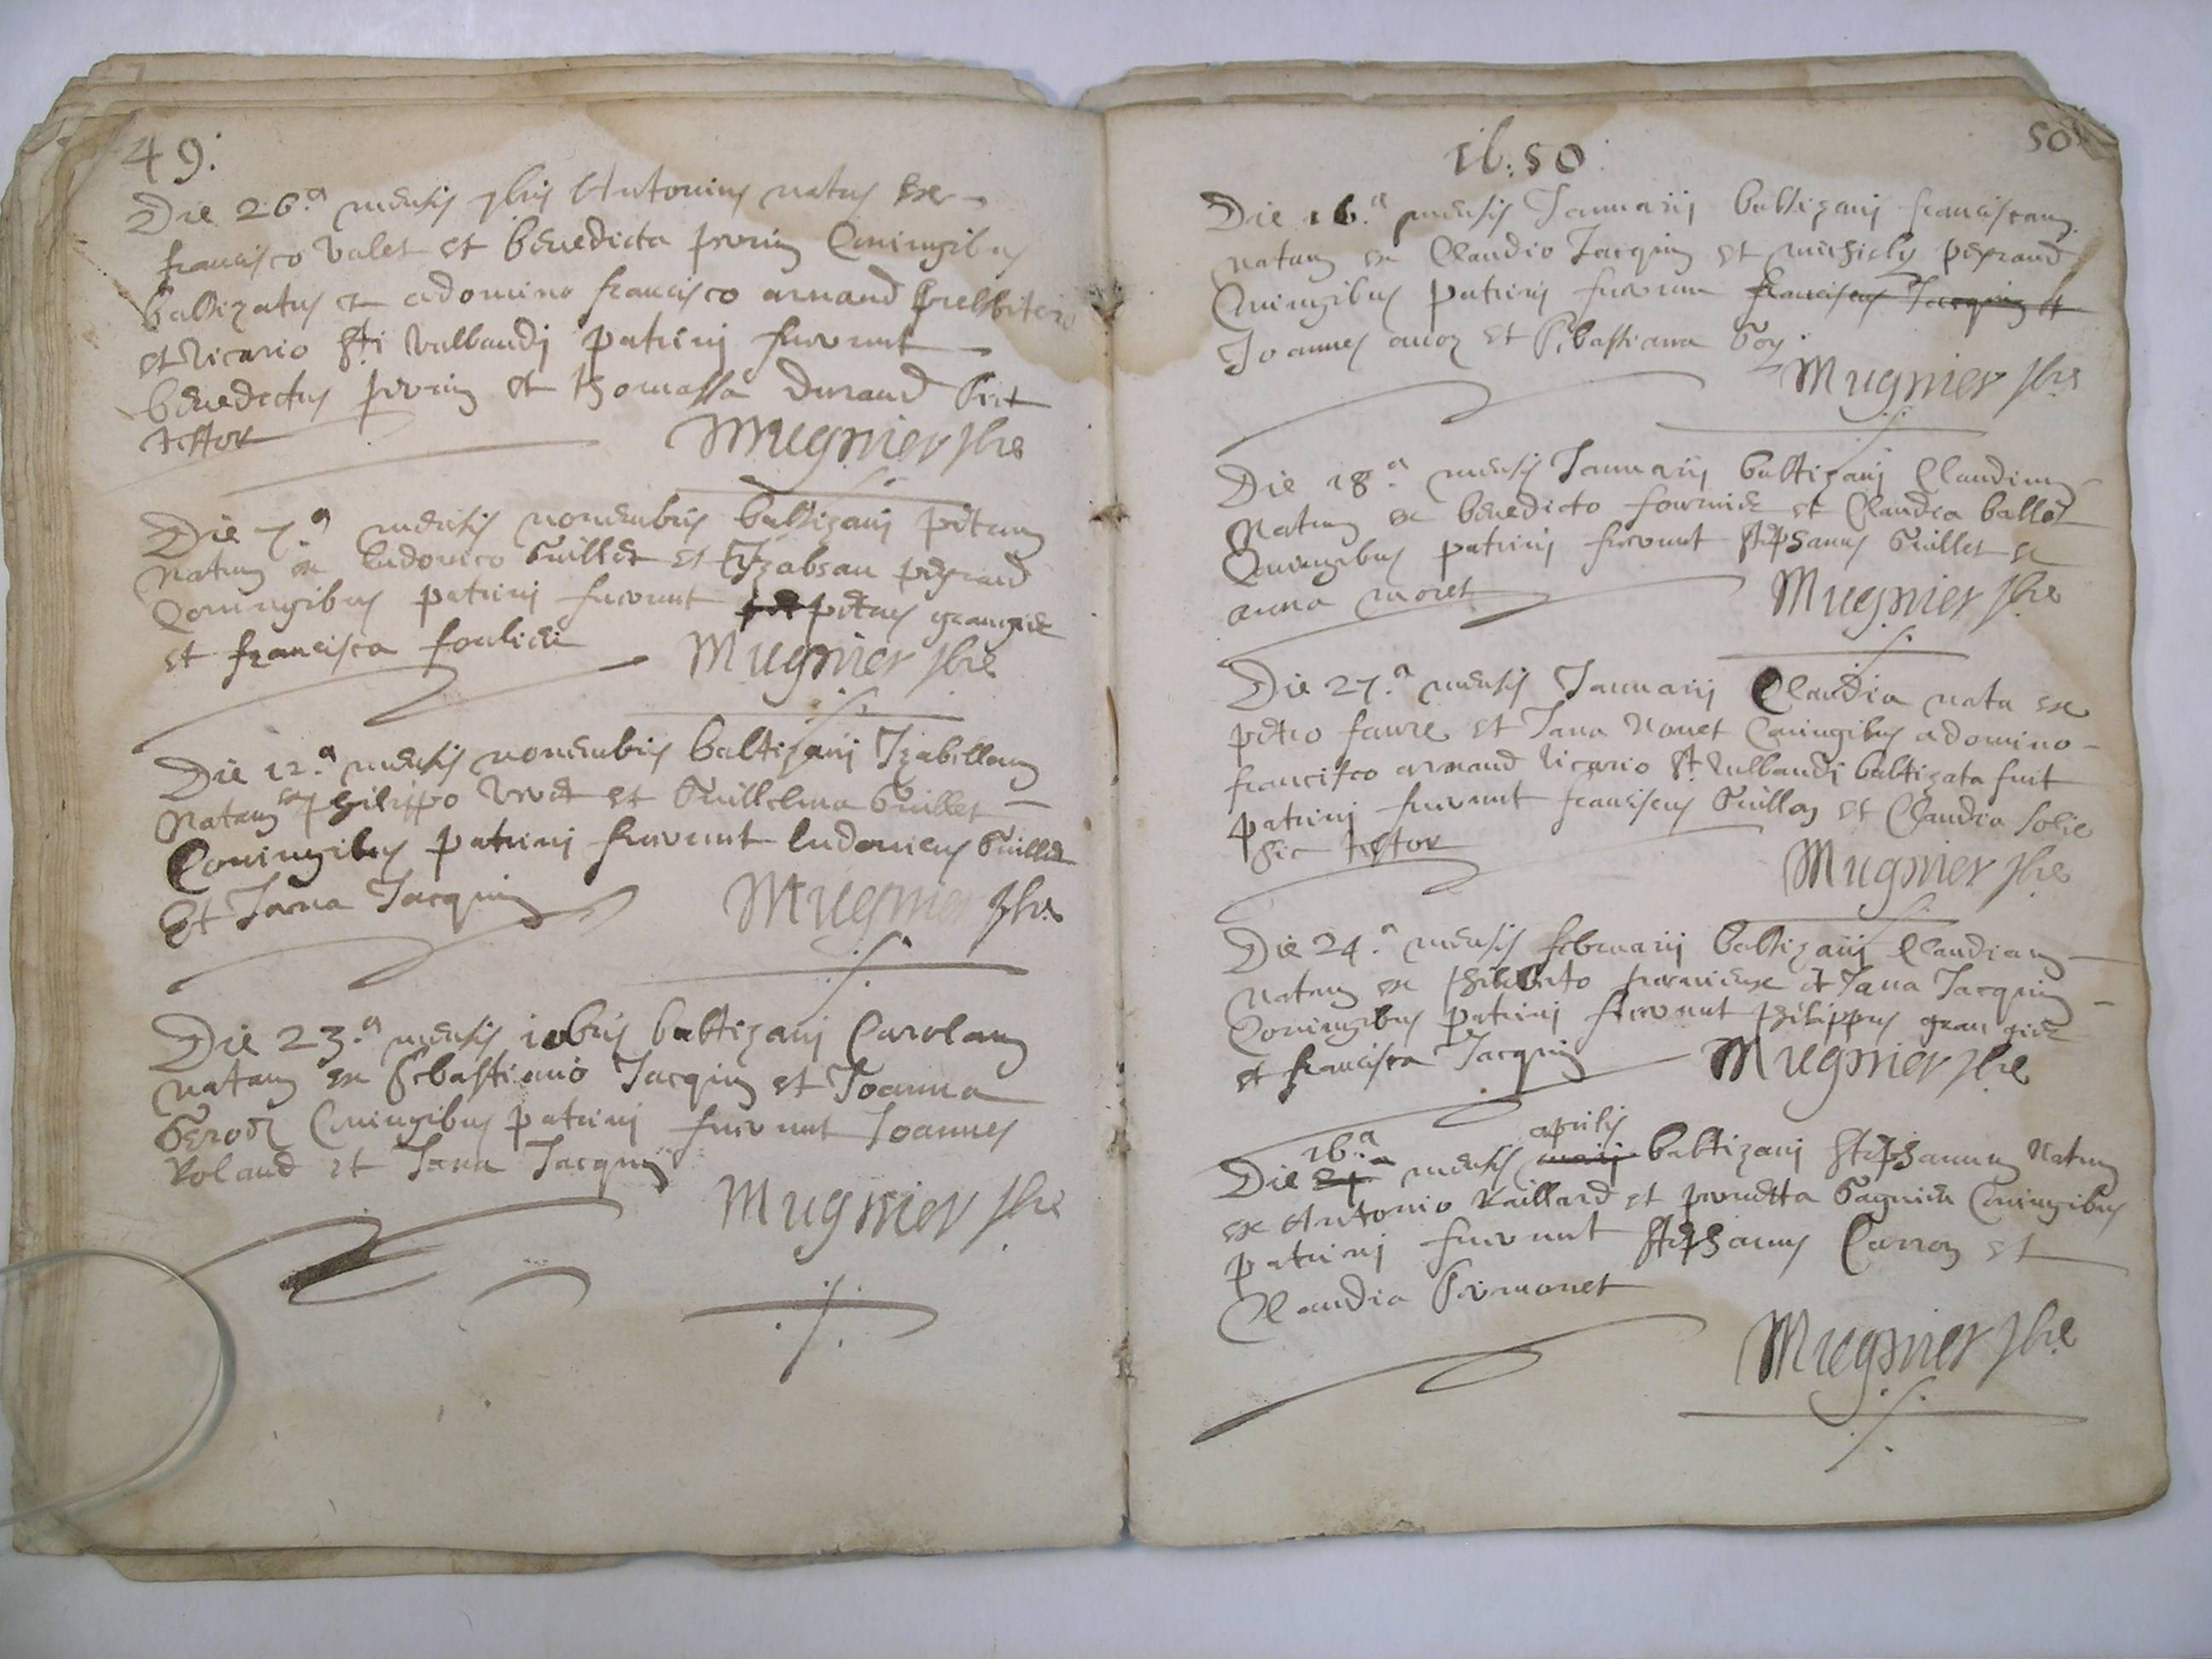 49.
Die 26.a mensis 7bris Antonius natus ex
francisco valet et benedicta perrin Coniugibus
baptizatus et a domino francisco arnaud presbitero
et vicario sti vulbaudj patrinj fuerunt
benedictus perrin et thomassa durand sic
testor
Mugnier pbre
Die 7.a mensis novembris baptizavj petrum
natum ex ludovico Guillet et Izabeau
Coniugibus patrinj fuerunt petrus grangier
et francisca
Mugnier pbre
Die 12.a mensis novembris baptizavj Izabellam
natam ex philippo et Guillelma Guillet
Coniugibus patrinj fuerunt ludovicus Guillet
Et Jana Jacquin
Mugnier pbre
Die 23.a mensis 10bris baptizavj Carolam
natam ex Sebastiano Jacquin et Joanna
Coniugibus patrinj fuerunt Joannes
Roland et Jana Jacquin
Mugnier pbre
16.50
50
Die 16.a mensis Januarij baptizavj franciscam
natam ex Claudio Jacquin et
Coniugibus patrinj fuerunt franciscus Jacquin et
Joannes et Sebastiana Goy
Mugnier pbre
Die 18.a mensis Januarij baptizavj Claudium
Natum ex benedicto fournier et Claudia ballet
Coniugibus patrinj fuerunt stephanus Guillet et
anna moret
Mugnier pbre
Die 27.a mensis Januarij Claudia nata ex
petro faure et Jana Coniugibus a domino
francisco arnaud vicario st vulbaudj baptizata fuit
patrinj fuerunt franciscus et Claudia
sic testor
Mugnier pbre
Die 24.a mensis februarij baptizavj Claudiam
natam ex philiberto et Jana Jacquin
Coniugibus patrinj fuerunt philippus grangier
et francisca Jacquin
Mugnier pbre
16.a aprilis
Die mensis baptizavj stephanum Natum
ex Antonio et Coniugibus
patrinj fuerunt stephanus Carron et
Claudia
Mugnier pbre